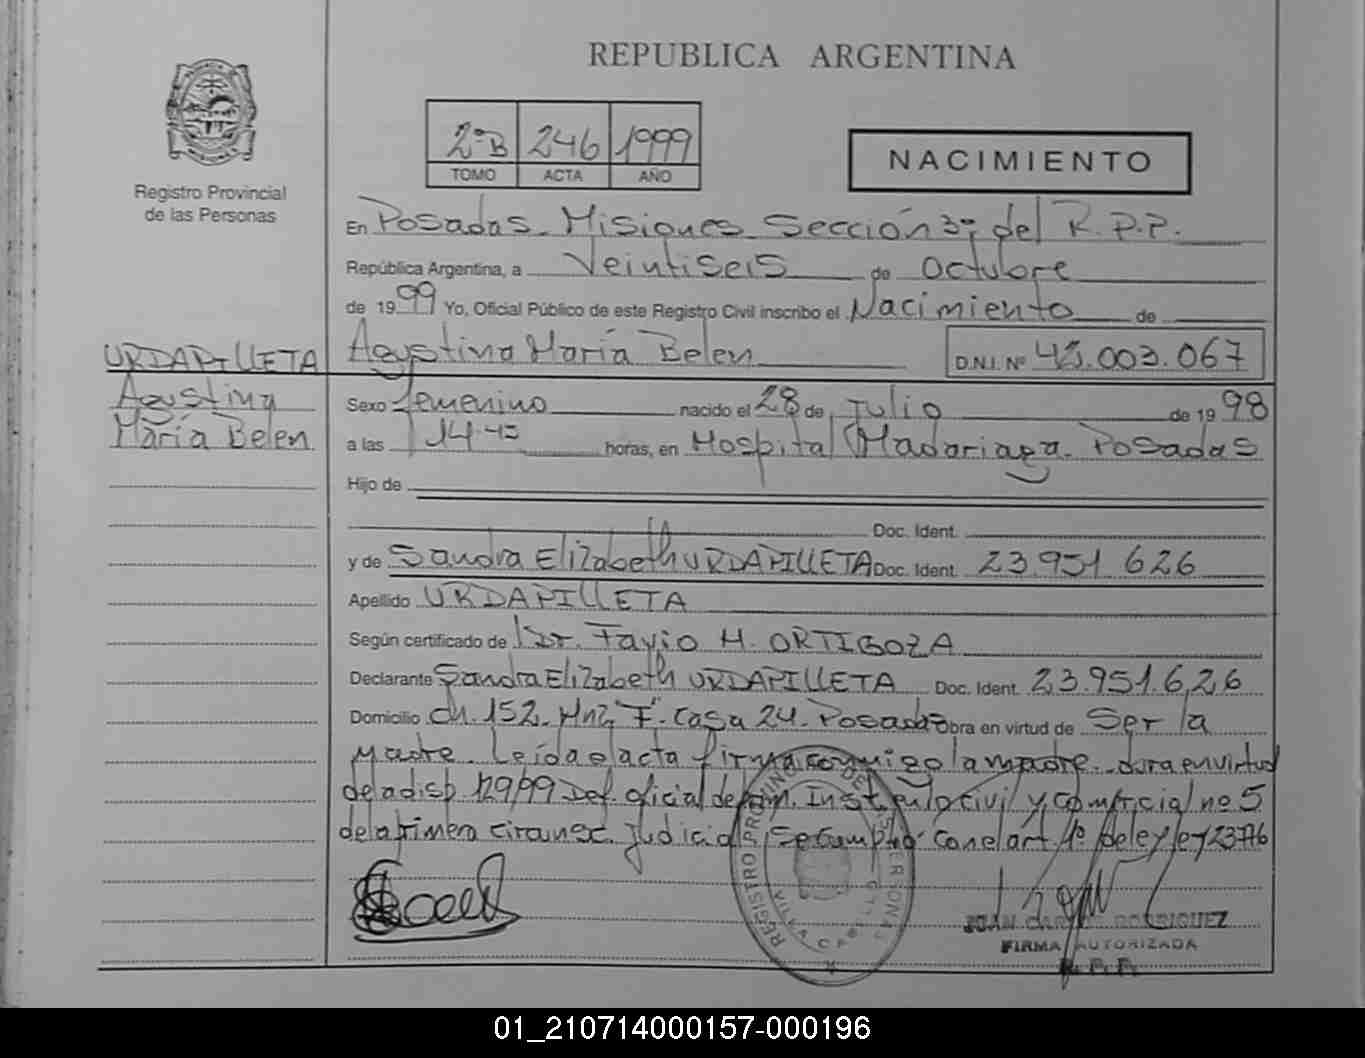 REPUBLICA ARGENTINA
Registro Provincial
de las Personas
2ºB 246 1999
TOMO ACTA AÑO
NACIMIENTO
En Posadas Misiones Sección 3º del R.P.P.
República Argentina, a Veintiseis de Octubre
de 1999 Yo, Oficial Público de este Registro Civil inscribo el Nacimiento de
Agustina María Belen D.N.I. Nº 43.003.067
URDAPILLETA
Agustina
María Belen
Sexo Femenino nacido el 28 de Julio de 1998
a las 14 horas, en Hospital Madariaga. Posadas
Hijo de
Doc. Ident.
y de Sandra Elizabeth URDAPILLETA Doc. Ident. 23.951 626
Apellido URDAPILLETA
Según certificado de Dr. Favio H. ORTIGOZA
Declarante Sandra Elizabeth URDAPILLETA Doc. Ident. 23.951.626
Domicilio Ch. 152. Mnz "F". Casa 24. Posadas Obra en virtud de Ser la
Madre. Leída el acta firma conmigo la madre. en virtud
de la disp. 129/99 Def. oficial de Inst. civil y comercial no 5
de la primera circunsc. Judicial con el art. 1º de ley
REGISTRO PROVINCIAL DE LAS PERSONAS
JUAN CARLOS RODRIGUEZ
FIRMA AUTORIZADA
R. P. P.
01_210714000157-000196